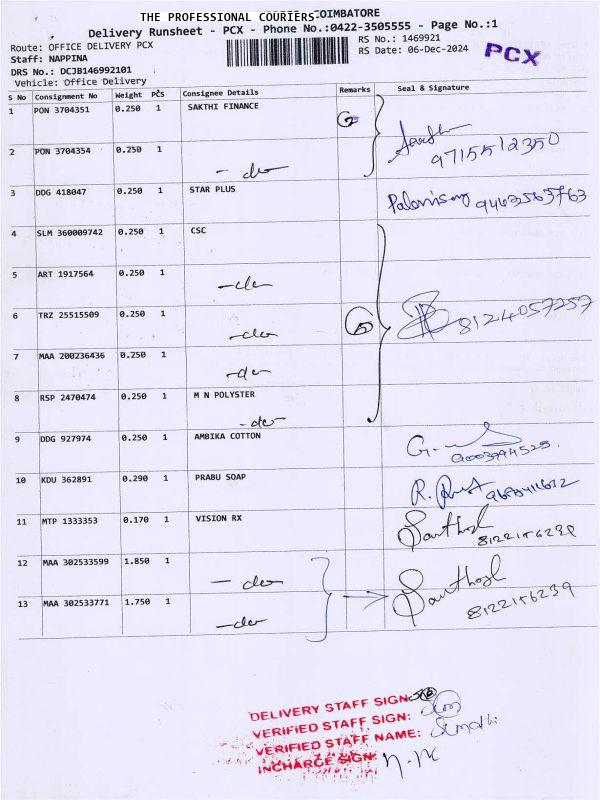 THE PROFESSIONAL COURIERS COIMBATORE
Delivery Runsheet - PCX - Phone No.:0422-3505555 - Page No.:1
Route: OFFICE DELIVERY PCX
RS No.: 1469921
Staff: NAPPINA
RS Date: 06-Dec-2024
PCX
DRS No.: DCJB146992101
Vehicle: Office Delivery
S No Consignment No Weight PCS Consignee Details Remarks Seal & Signature
1 PON 3704351 0.250 1 SAKTHI FINANCE 2
9715512350
2 PON 3704354 0.250 1 - do
3 DDG 418047 0.250 1 STAR PLUS Palanisamy 9463563763
4 SLM 360009742 0.250 1 CSC
5 ART 1917564 0.250 1 - do
6 TRZ 25515509 0.250 1 - do 5 8124057257
7 MAA 200236436 0.250 1 - do
8 RSP 2470474 0.250 1 M N POLYSTER - do
9 DDG 927974 0.250 1 AMBIKA COTTON
10 KDU 362891 0.290 1 PRABU SOAP
11 MTP 1333353 0.170 1 VISION RX Santhosh 8122156239
12 MAA 302533599 1.850 1 - do Santhosh
13 MAA 302533771 1.750 1 - do 8122156239
DELIVERY STAFF SIGN:
VERIFIED STAFF SIGN:
VERIFIED STAFF NAME:
INCHARGE SIGN: